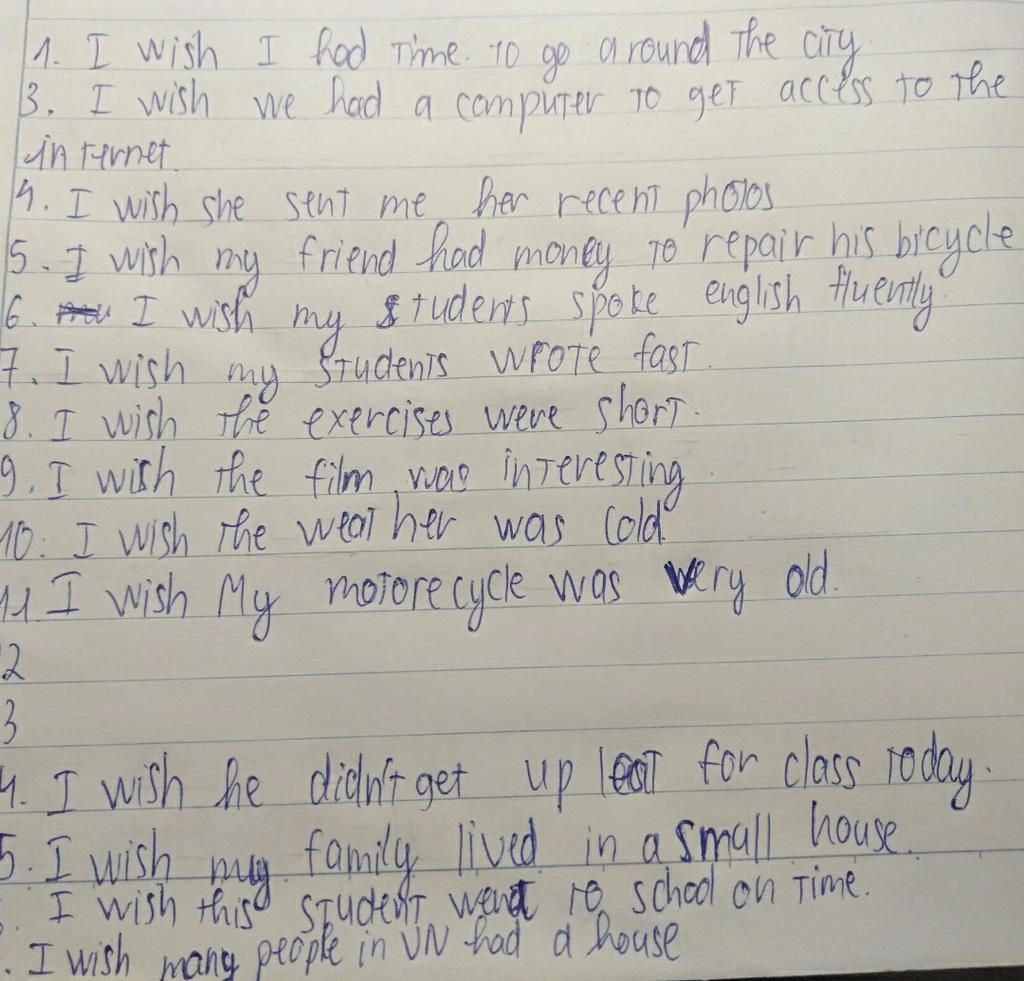 1. I wish I had time. to go around the city
3. I wish we had a computer to get access to the
internet
4. I wish she sent me her recent photos
5. I wish my friend had money to repair his bicycle
6. I wish my students spoke english fluently
7. I wish my students wrote fast.
8. I wish the exercises were short.
9. I wish the film was interesting.
10. I wish the weather was cold
11 I wish My motorecycle was very old.
2
3
4. I wish he didn't get up for class today.
5. I wish my family lived in a small house.
I wish this student went to school on time.
. I wish many people in VN had a house